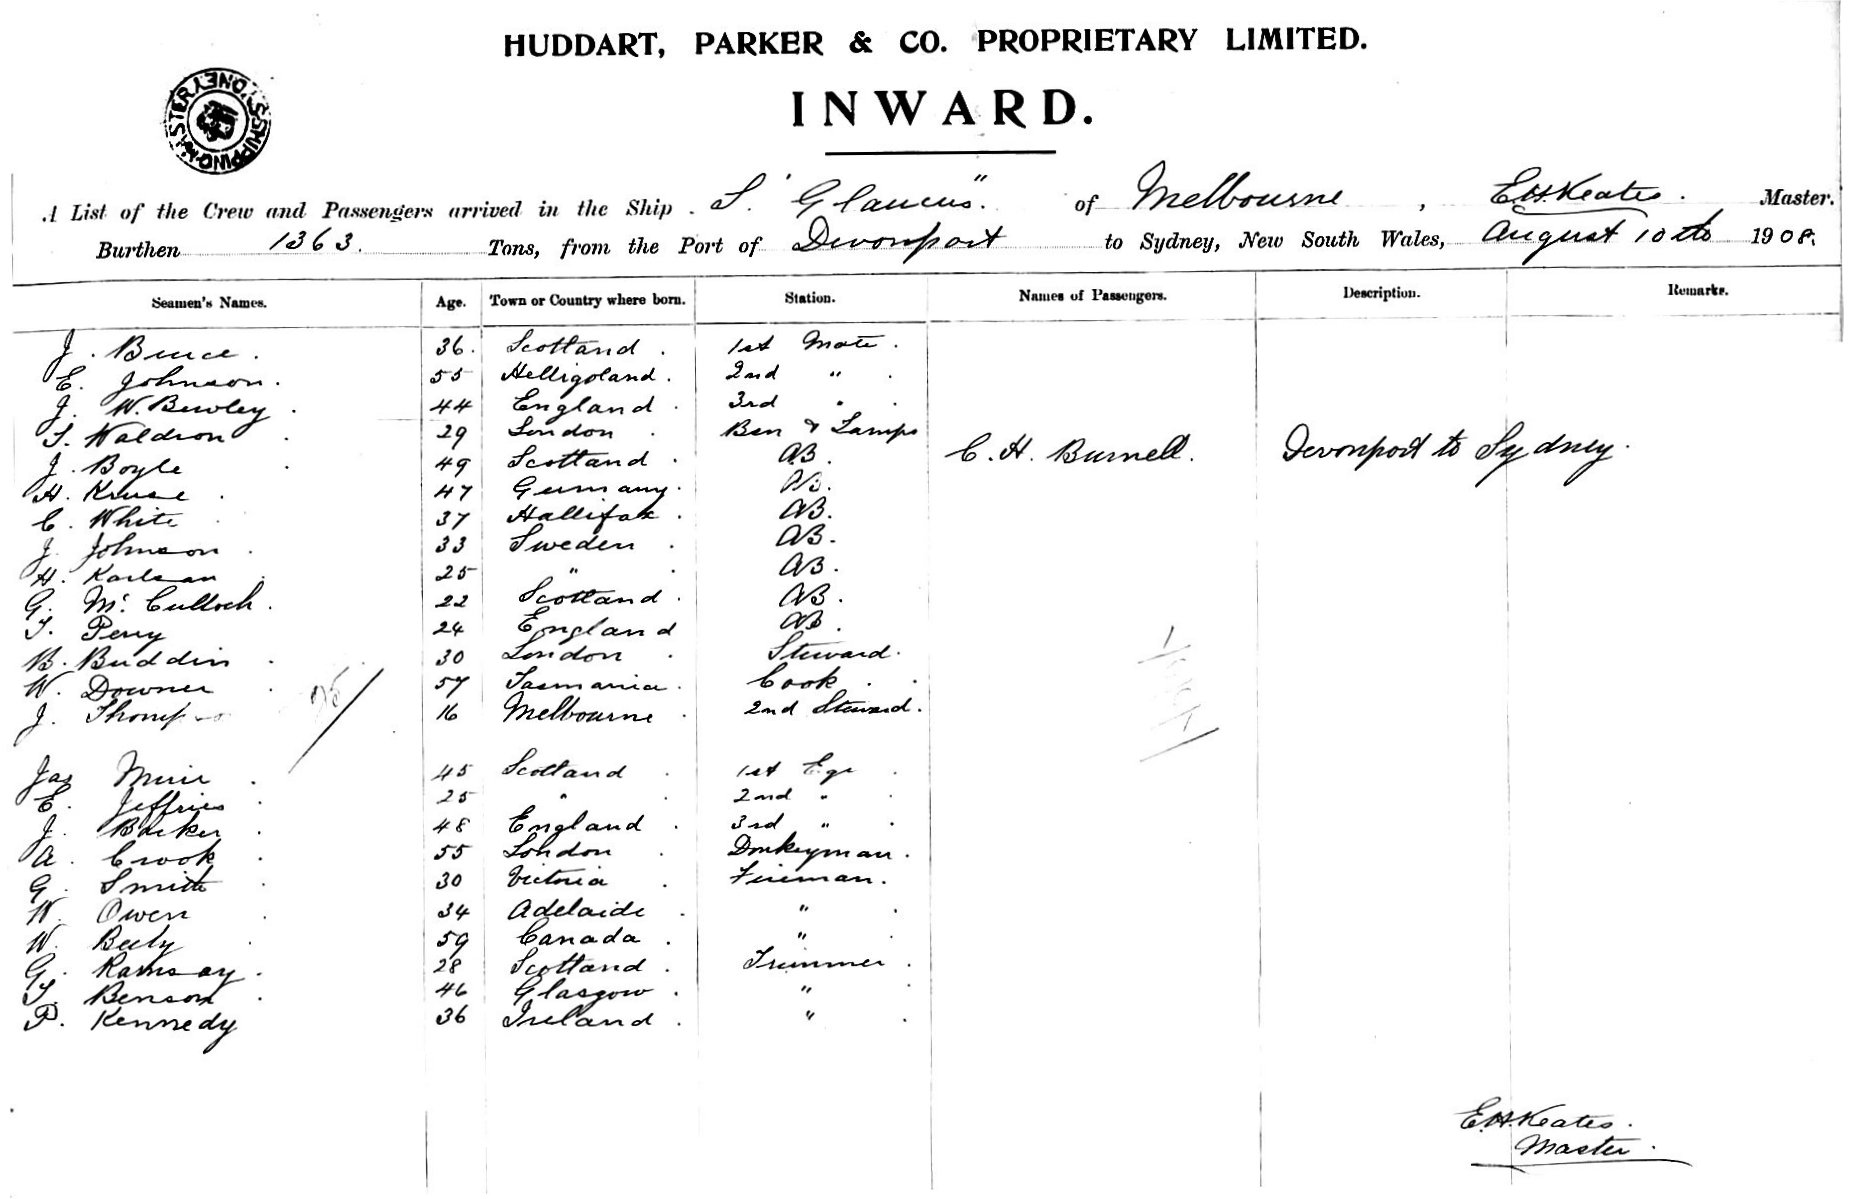 HUDDART, PARKER & CO. PROPRIETARY LIMITED.
INWARD.
A List of the Crew and Passengers arrived in the Ship S. "Glaucus" of Melbourne, E.H. Keates. Master.
Burthen 1363. Tons, from the Port of Devonport to Sydney, New South Wales, August 10th 1908.
Seamen's Names. Age. Town or Country where born. Station. Names of Passengers. Description. Remarks.
J. Bruce. 36. Scotland. 1st Mate.
E. Johnson. 55 Helligoland. 2nd "
J. W. Bewley. 44 England. 3rd "
T. Waldron 29 London. Bsn & Lamps
J. Boyle 49 Scotland. AB. C. H. Burnell. Devonport to Sydney.
H. Kruse. 47 Germany. AB.
C. White 37 Hallifax. AB.
J. Johnson. 33 Sweden. AB.
H. Karlsan 25 " AB.
G. McCulloch. 22 Scotland. AB.
T. Perry 24 England AB.
B. Buddin. 30 London. Steward.
W. Downer 57 Tasmania. Cook.
J. 16 Melbourne. 2nd Steward.
Jas Muir. 45 Scotland. 1st Egr.
E. Jeffries. 25 " 2nd "
J. Barker. 48 England. 3rd "
A. Crook. 55 London. Donkeyman.
G. Smith. 30 Victoria. Fireman.
W. Owen. 34 Adelaide. "
W. 59 Canada. "
G. Ramsay. 28 Scotland. Trimmer.
T. Benson. 46 Glasgow. "
P. Kennedy 36 Ireland. "
E.H. Keates.
Master.